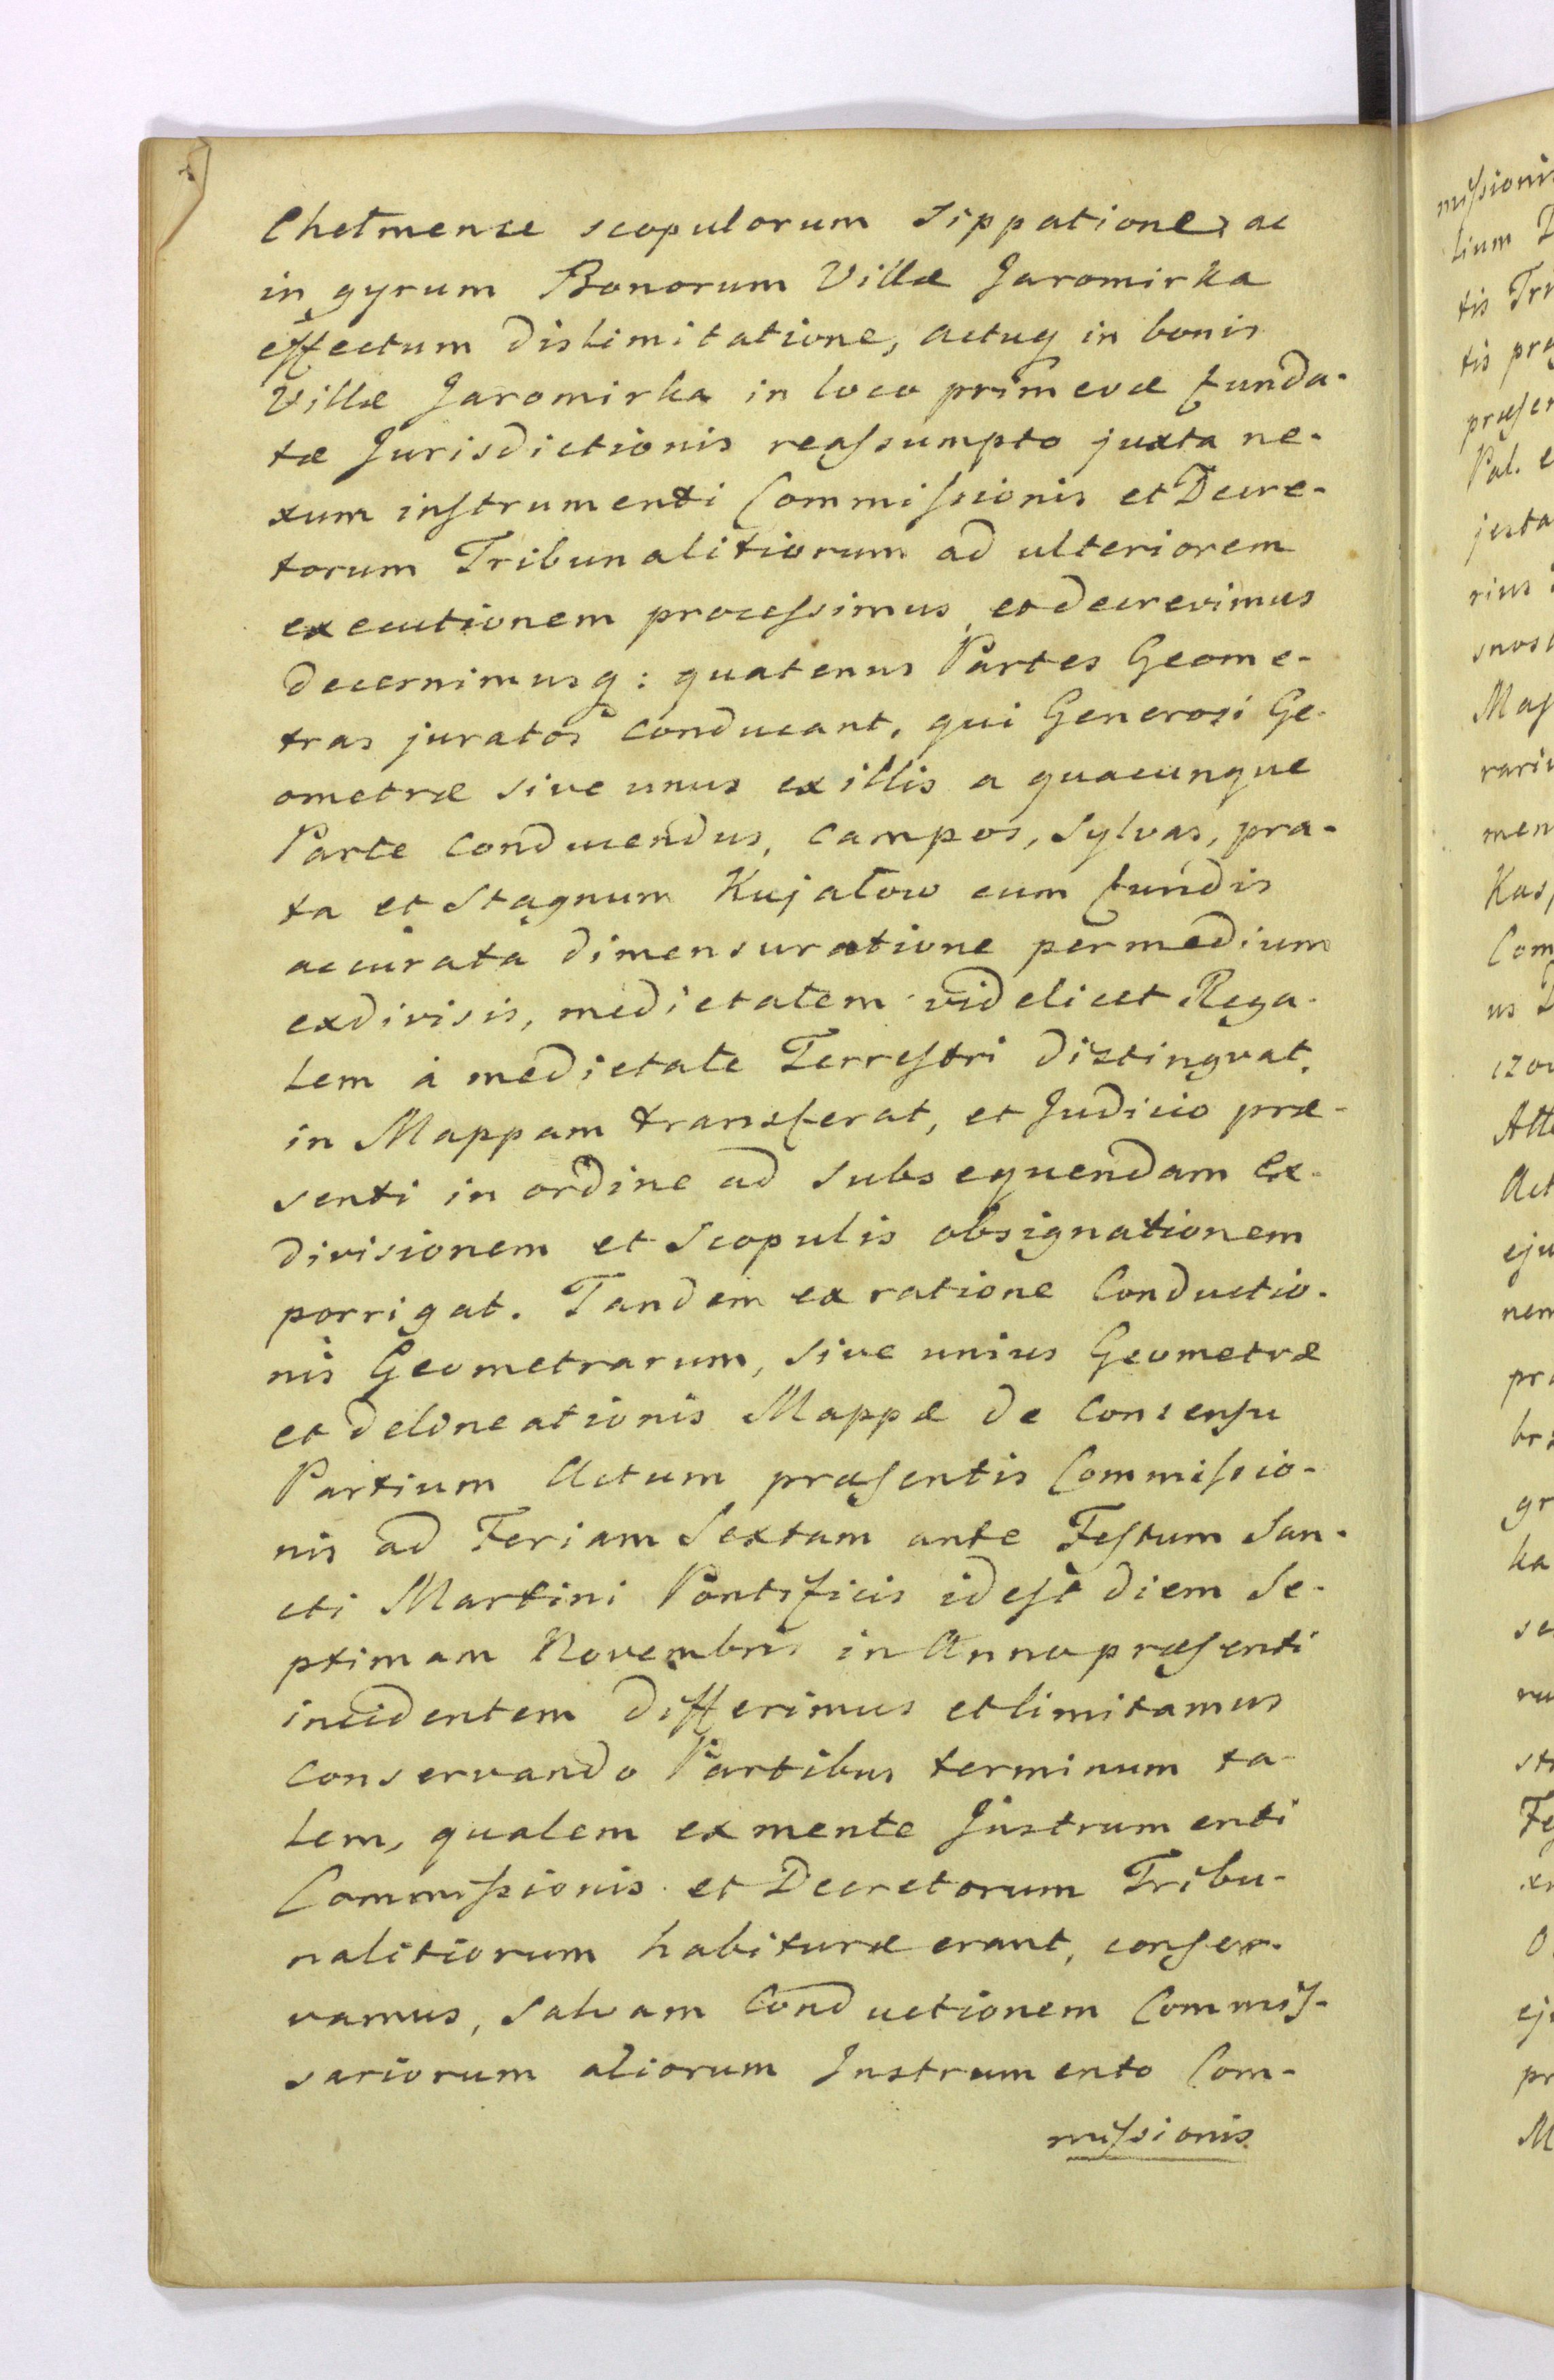 Chełmense scopulorum sippatione, ac
in gyrum Bonorum Villæ Jaromirka
effectum dislimitatione, actuq in bonis
Villæ Jaromirka in loco primevæ funda-
tæ Jurisdictionis reaſsumpto juxta ne-
xum inſtrumenti Commiſsionis et Decre-
torum Tribunalitiorum ad ulteriorem
executionem proceſsimus et decrevimus
decernimusq: quatenus Partes Geome-
tras juratos conducant, qui Generosi Ge-
ometræ sive unus ex illis a quacunque
Parte conducendus, campos, sylvas, pra-
ta et Stagnum Kujatow cum fundis
accurata dimensuratione per medium
exdivisis, medietatem videlicet Rega-
lem à medietate Terreſtri distinguat,
in Mappam transferat, et Judicio præ-
senti in ordine ad subsequendam ex-
divisionem et Scopulis obsignationem
porrigat. Tandem ex ratione Conductio-
nis Geometrarum, sive unius Geometræ
et delineationis Mappæ de Conſensu
Partium Actum præſentis Commiſsio-
nis ad Feriam Sextam ante Feſtum San-
cti Martini Pontificis id eſt diem Se-
ptimam Novembris in Anno præſenti
incidentem differimus et limitamus
conservando Partibus terminum ta-
lem, qualem ex mente Instrumenti
Commiſsionis et Decretorum Tribu-
nalitiorum habituræ erant, conſer-
vamus, salvam Conductionem Commiſ-
sariorum aliorum Instrumento Com-
miſsionis
miſsionis
lium
tis
tis
præſen
Pal. e
juxta
rius
men
Com
us
Act
eju
nem
pr
gr
ka
se
ej
pr
M